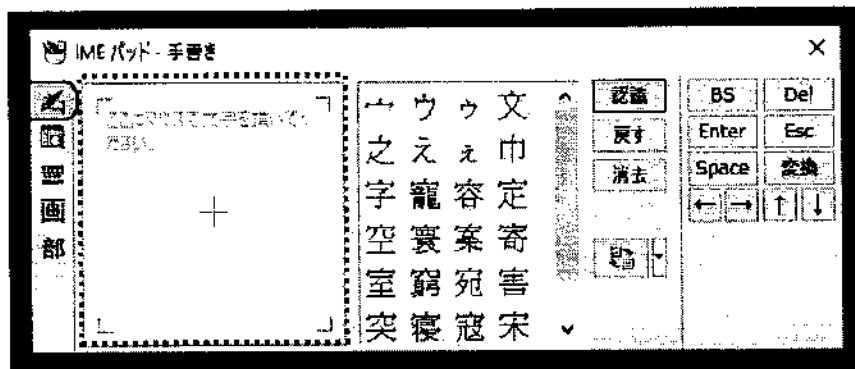 IME パッド - 手書き
ここにマウスで文字を描いてください。
亠 ウ ゥ 文
之 え ぇ 巾
字 寵 容 定
空 寰 案 寄
室 窮 宛 害
突 寝 寇 宋
部
認識
戻す
消去
BS Del
Enter Esc
Space 変換
← → ↑ ↓